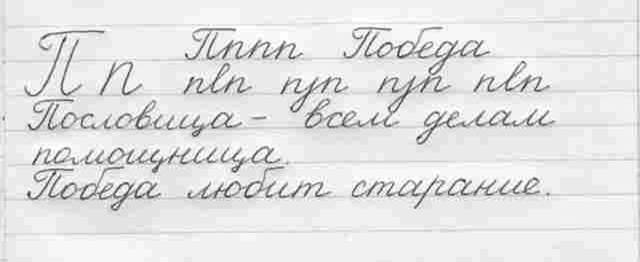 П п Пппп Победа
пвп пуп пуп пвп
Пословица - всем делам
помощница.
Победа любит старание.